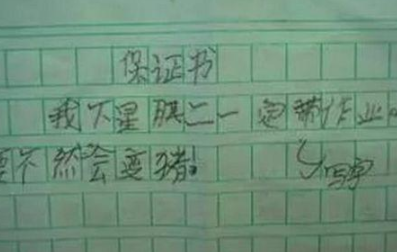 保证书
我下星期二一定带作业
要不然会变猪。